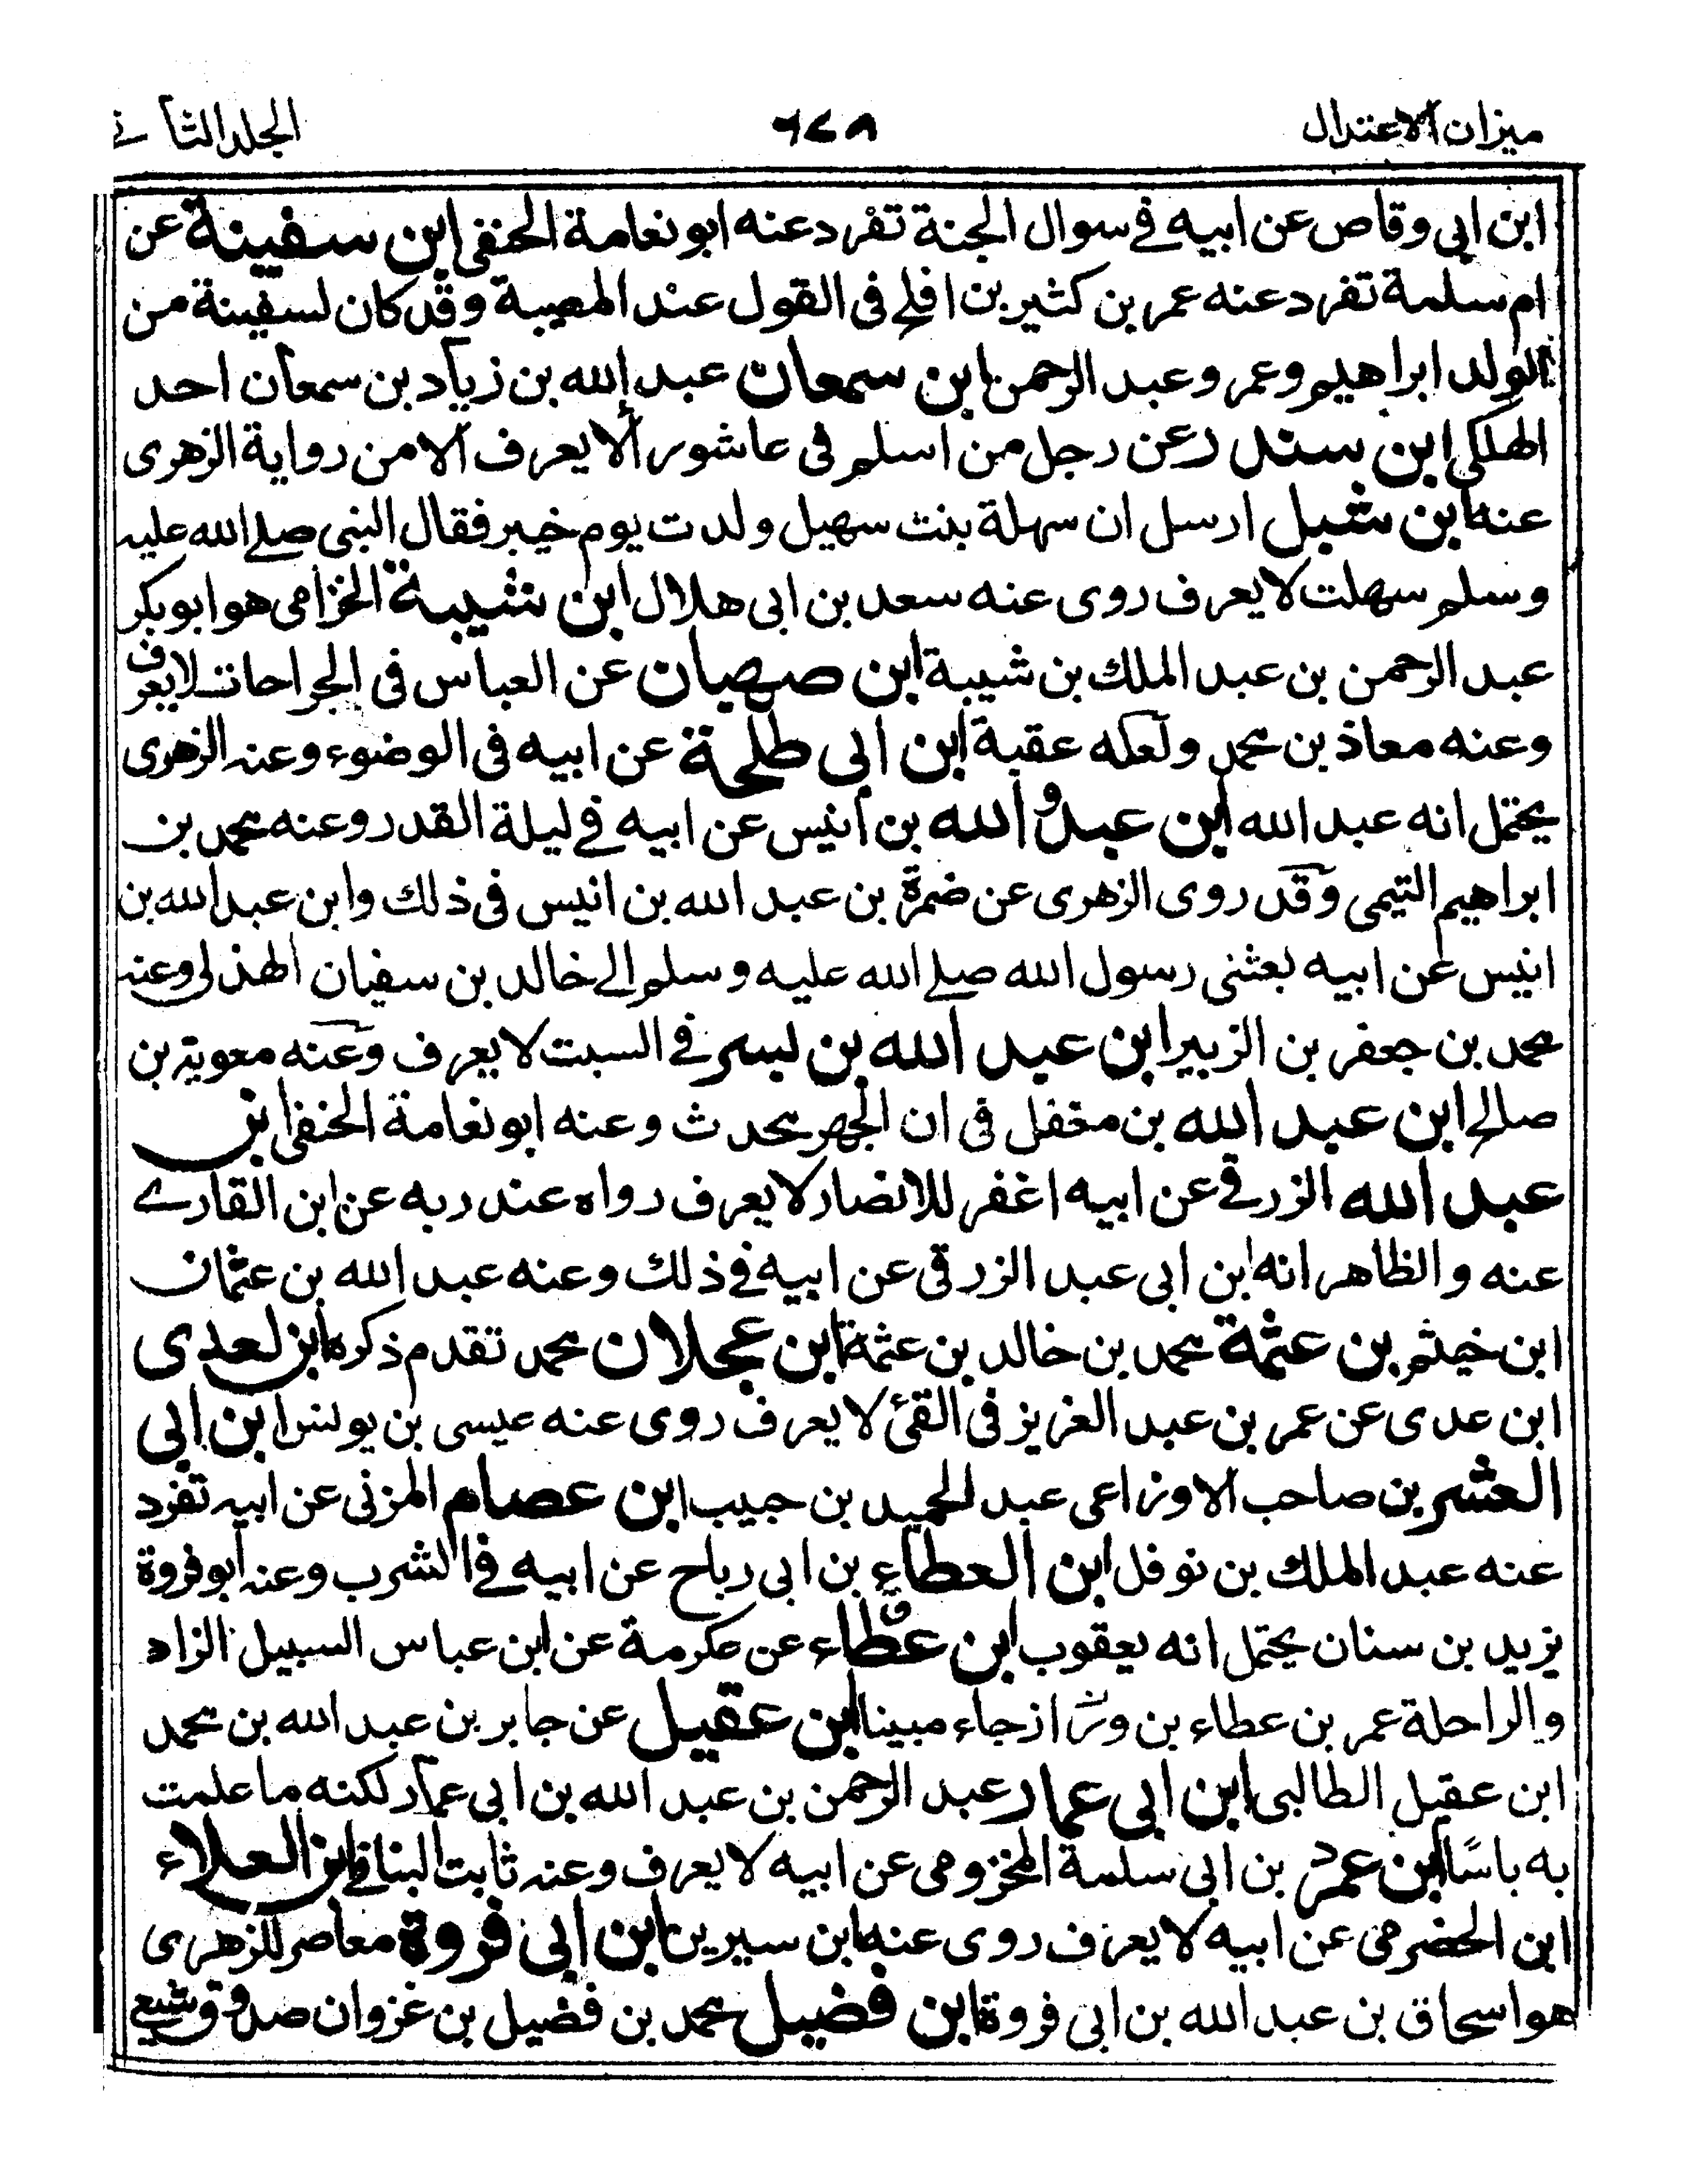 ميزان الاعتدال
٦٧٨
الجلد الثاني
ابن ابي وقاص عن ابيه في سوال الجنة تفرد عنه ابو نعامة الحنفي ابن سفينة عن
ام سلمة تفرد عنه عمر بن كثير بن افلح في القول عند المصيبة وقد كان لسفينة من
الولد ابراهيم وعمر وعبد الرحمن ابن سمعان عبد الله بن زياد بن سمعان احد
الهلكى ابن سندر عن رجل من اسلم في عاشوراء لا يعرف الا من رواية الزهرى
عنه ابن شبل ارسل ان سهلة بنت سهيل ولدت يوم خيبر فقال النبي صلے الله عليه
وسلم سهلت لا يعرف روى عنه سعد بن ابى هلال ابن شيبة الخزامى هو ابو بكر
عبد الرحمن بن عبد الملك بن شيبة ابن صهبان عن العباس فى الجراحات لا يعرف
وعنه معاذ بن محمد ولعله عقبة ابن ابى طلحة عن ابيه فى الوضوء وعنه الزهرى
يحتمل انه عبد الله ابن عبد الله بن انيس عن ابيه في ليلة القدر وعنه محمد بن
ابراهيم التيمى وقد روى الزهرى عن ضمرة بن عبد الله بن انيس فى ذلك وابن عبد الله بن
انيس عن ابيه بعثنى رسول الله صلے الله عليه وسلم الے خالد بن سفيان الهذلى وعنه
محمد بن جعفر بن الزبير ابن عبد الله بن بسر في السبت لا يعرف وعنه معوية بن
صالح ابن عبد الله بن مغفل فى ان الجهر محدث وعنه ابو نعامة الحنفى ابن
عبد الله الزرقے عن ابيه اغفر للانصار لا يعرف رواه عند ربه عن ابن القارے
عنه والظاهر انه ابن ابى عبد الزرقى عن ابيه فے ذلك وعنه عبد الله بن عثمان
ابن خيثم بن عثمة محمد بن خالد بن عثمة ابن عجلان محمد تقدم ذكره ابن لعدى
ابن عدى عن عمر بن عبد العزيز فى القئ لا يعرف روى عنه عيسى بن يونس ابن ابى
العشرين صاحب الاوزاعى عبد الحميد بن حبيب ابن عصام المزنى عن ابيه تفرد
عنه عبد الملك بن نوفل ابن العطاء بن ابى رباح عن ابيه في الشرب وعنه ابو فروة
يزيد بن سنان يحتمل انه يعقوب ابن عطاء عن عكرمة عن ابن عباس السبيل الزاد
والراحلة عمر بن عطاء بن وراز جاء مبينا ابن عقيل عن جابر بن عبد الله بن محمد
ابن عقيل الطالبى ابن ابى عمار عبد الرحمن بن عبد الله بن ابى عمار لكنه ما علمت
به باسًا ابن عمر بن ابى سلمة المخزومى عن ابيه لا يعرف وعنه ثابت البنانے ابن العلاء
ابن الحضرمى عن ابيه لا يعرف روى عنه ابن سيرين ابن ابى فروة معاصر للزهرى
هو اسحاق بن عبد الله بن ابى فروة ابن فضيل محمد بن فضيل بن غزوان صدوق شيعے